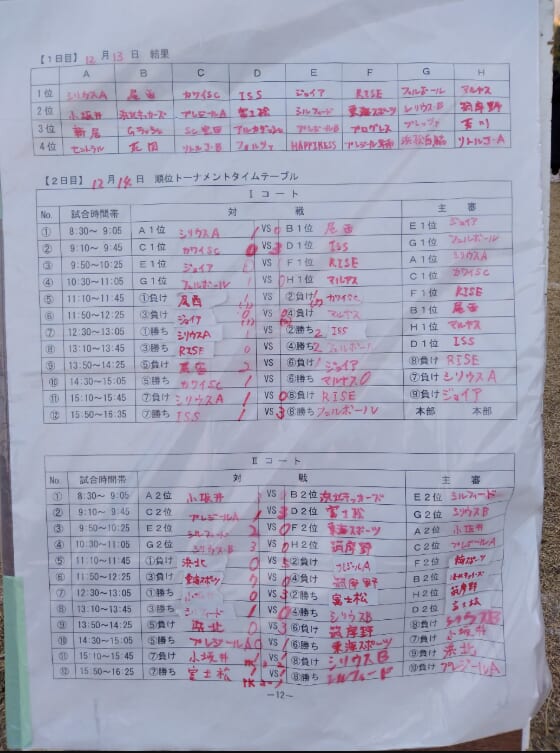 【1日目】12月13日 結果
A B C D E F G H
1位 シリウスA 尾西 カワイSC ISS ジョイア RISE フェルボール マルヤス
2位 小坂井 浜北キッカーズ プレジールA 富士松 シルフィード 東海スポーツ シリウスB 筑摩野
3位 新居 Gフラッシュ プレジールB プログレス
4位 セントラル リトルJ-B フォルツァ HAPPINESS リトルJ-A
【2日目】12月14日 順位トーナメントタイムテーブル
Ⅰコート
No. 試合時間帯 対戦 主審
① 8:30～ 9:05 A1位 シリウスA VS B1位 尾西 E1位 ジョイア
② 9:10～ 9:45 C1位 カワイSC 0 VS 3 D1位 ISS G1位 フェルボール
③ 9:50～10:25 E1位 ジョイア VS F1位 RISE A1位 シリウスA
④ 10:30～11:05 G1位 フェルボール VS H1位 マルヤス C1位 カワイSC
⑤ 11:10～11:45 ①負け 尾西 VS ②負け カワイSC F1位 RISE
⑥ 11:50～12:25 ③負け ジョイア VS ④負け マルヤス B1位 尾西 H1位 マルヤス
⑦ 12:30～13:05 ①勝ち シリウスA VS ②勝ち ISS H1位 マルヤス
⑧ 13:10～13:45 ③勝ち RISE 0 VS ④勝ち フェルボール D1位 ISS
⑨ 13:50～14:25 ⑤負け 尾西 2 VS ⑥負け ジョイア ⑧負け RISE
⑩ 14:30～15:05 ⑤勝ち カワイSC 1 VS ⑥勝ち マルヤス 0 ⑦負け シリウスA
⑪ 15:10～15:45 ⑦負け シリウスA 1 VS 0 ⑧負け RISE ⑨負け ジョイア
⑫ 15:50～16:35 ⑦勝ち ISS 1 VS 3 ⑧勝ち フェルボール 本部 本部
Ⅱコート
No. 試合時間帯 対戦 主審
① 8:30～ 9:05 A2位 小坂井 VS B2位 浜北キッカーズ E2位 シルフィード
② 9:10～ 9:45 C2位 プレジールA 1 VS 3 D2位 富士松 G2位 シリウスB
③ 9:50～10:25 E2位 シルフィード 2 VS 0 F2位 東海スポーツ A2位 小坂井
④ 10:30～11:05 G2位 シリウスB 3 VS 0 H2位 筑摩野 C2位 プレジールA
⑤ 11:10～11:45 ①負け 浜北 0 VS 5 ②負け プレジールA F2位 東海スポーツ
⑥ 11:50～12:25 ③負け 東海スポーツ VS ④負け 筑摩野 B2位 浜北キッカーズ
⑦ 12:30～13:05 ①勝ち 小坂井 VS ②勝ち 富士松 H2位 筑摩野
⑧ 13:10～13:45 ③勝ち シルフィード 1 VS 0 ④勝ち シリウスB D2位 富士松
⑨ 13:50～14:25 ⑤負け 浜北 0 VS 3 ⑥負け 筑摩野 ⑧負け シリウスB
⑩ 14:30～15:05 ⑤勝ち プレジールA 0 VS 1 ⑥勝ち 東海スポーツ ⑦負け 小坂井
⑪ 15:10～15:45 ⑦負け 小坂井 VS ⑧負け シリウスB ⑨負け 浜北
⑫ 15:50～16:25 ⑦勝ち 富士松 1 VS 1 ⑧勝ち シルフィード ⑩負け プレジールA
PK
―12―